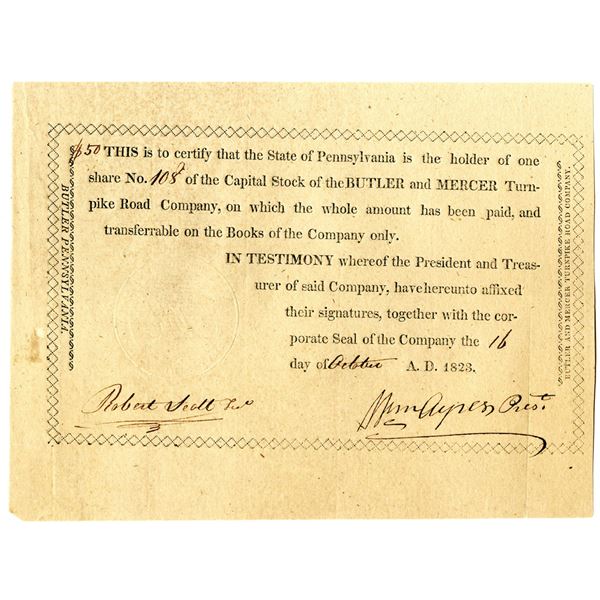 BUTLER PENNSYLVANIA.
$50 THIS is to certify that the State of Pennsylvania is the holder of one
share No. 108 of the Capital Stock of the BUTLER and MERCER Turn-
pike Road Company, on which the whole amount has been paid, and
transferrable on the Books of the Company only.
IN TESTIMONY whereof the President and Treas-
urer of said Company, have hereunto affixed
their signatures, together with the cor-
porate Seal of the Company the 16
day of October A. D. 1823.
Robert Scott Tr
Wm Ayres Prest.
BUTLER AND MERCER TURNPIKE ROAD COMPANY.